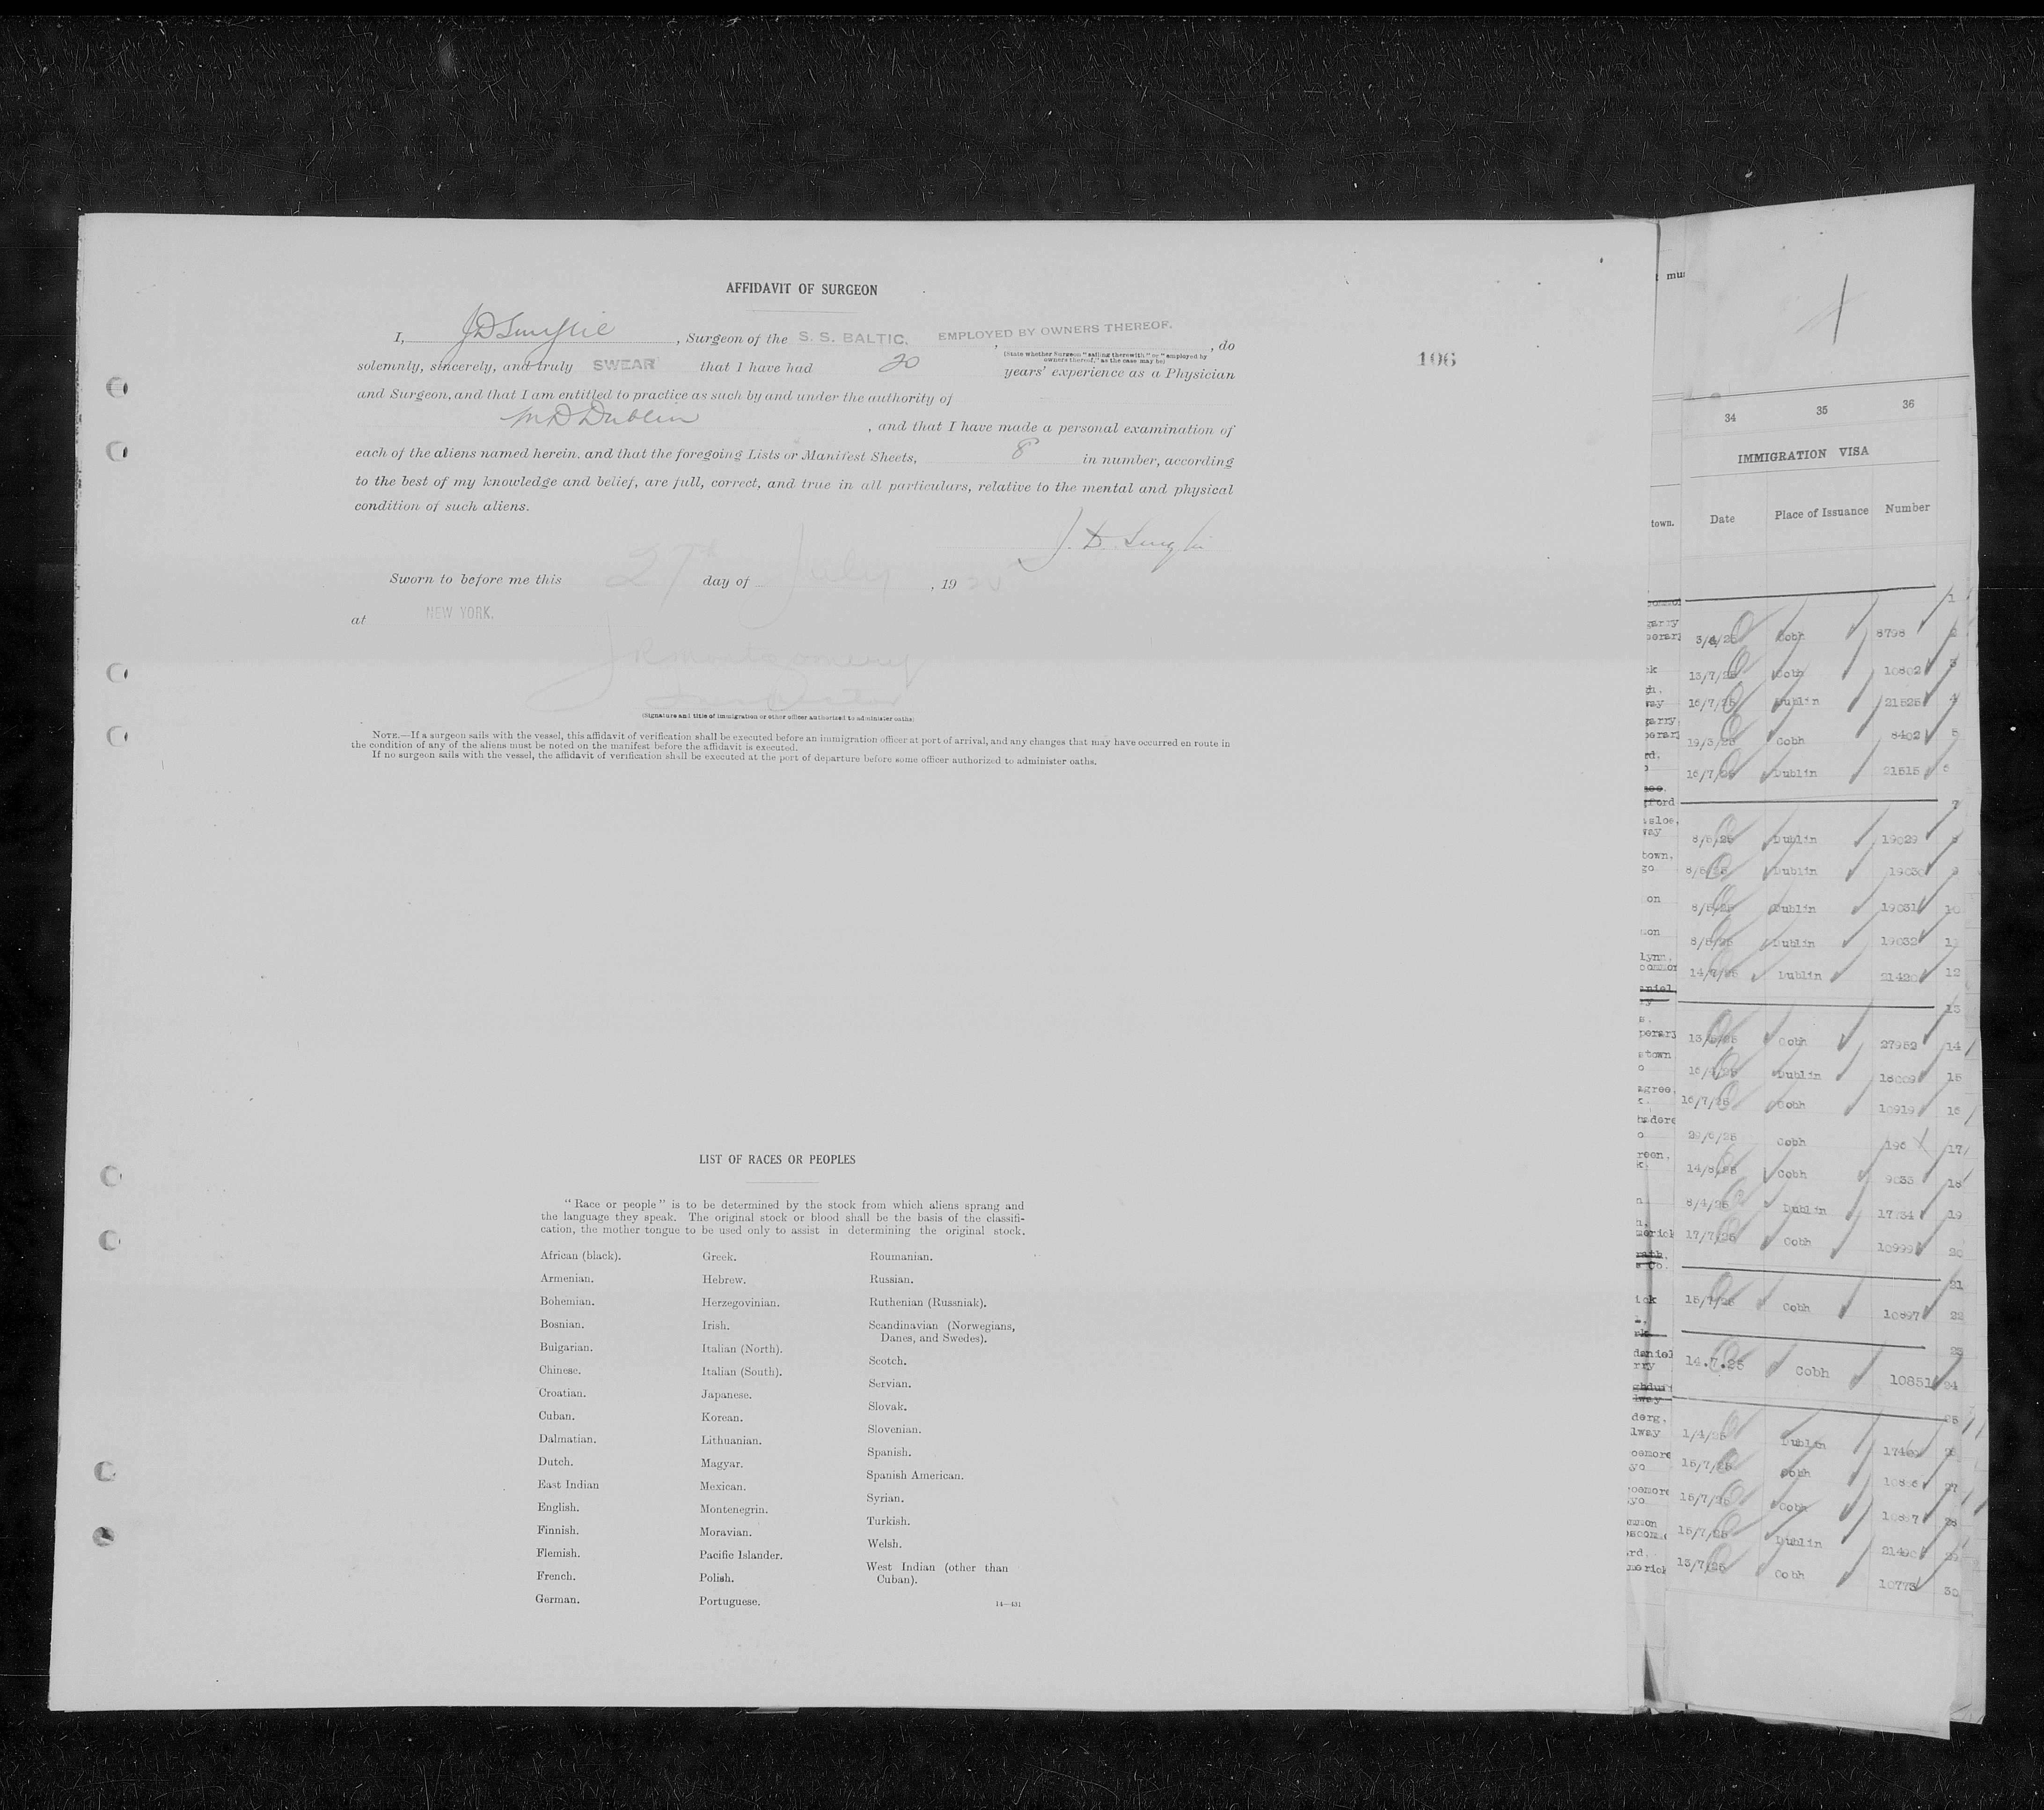 AFFIDAVIT OF SURGEON
I, , Surgeon of the S. S. BALTIC, EMPLOYED BY OWNERS THEREOF, , do
(State whether Surgeon "sailing therewith" or "employed by
owners thereof," as the case may be)
solemnly, sincerely, and truly SWEAR that I have had 20 years' experience as a Physician
and Surgeon, and that I am entitled to practice as such by and under the authority of
MD Dublin , and that I have made a personal examination of
each of the aliens named herein. and that the foregoing Lists or Manifest Sheets, 8 in number, according
to the best of my knowledge and belief, are full, correct, and true in all particulars, relative to the mental and physical
condition of such aliens.
J. D.
Sworn to before me this 27th day of July , 19
at NEW YORK.
J R Montgomery
Inspector
(Signature and title of immigration or other officer authorized to administer oaths)
NOTE.—If a surgeon sails with the vessel, this affidavit of verification shall be executed before an immigration officer at port of arrival, and any changes that may have occurred en route in
the condition of any of the aliens must be noted on the manifest before the affidavit is executed.
If no surgeon sails with the vessel, the affidavit of verification shall be executed at the port of departure before some officer authorized to administer oaths.
106
LIST OF RACES OR PEOPLES
"Race or people" is to be determined by the stock from which aliens sprang and
the language they speak. The original stock or blood shall be the basis of the classifi-
cation, the mother tongue to be used only to assist in determining the original stock.
African (black).
Armenian.
Bohemian.
Bosnian.
Bulgarian.
Chinese.
Croatian.
Cuban.
Dalmatian.
Dutch.
East Indian
English.
Finnish.
Flemish.
French.
German.
Greek.
Hebrew.
Herzegovinian.
Irish.
Italian (North).
Italian (South).
Japanese.
Korean.
Lithuanian.
Magyar.
Mexican.
Montenegrin.
Moravian.
Pacific Islander.
Polish.
Portuguese.
Roumanian.
Russian.
Ruthenian (Russniak).
Scandinavian (Norwegians,
Danes, and Swedes).
Scotch.
Servian.
Slovak.
Slovenian.
Spanish.
Spanish American.
Syrian.
Turkish.
Welsh.
West Indian (other than
Cuban).
14—431
34 35 36
IMMIGRATION VISA
town. Date Place of Issuance Number
1
Cobh 8798 2
13/7/25 Cobh 10802 3
16/7/25 Dublin 21525 4
19/3/25 Cobh 8402 5
16/7/25 Dublin 21515 6
7
8/5/25 Dublin 19029 8
8/5/25 Dublin 19030 9
8/5/25 Dublin 19031 10
8/5/25 Dublin 19032 11
14/7/25 Dublin 21420 12
13
Cobh 27952 14
Dublin 18009 15
16/7/25 Cobh 10919 16
29/6/25 Cobh 196 17
Cobh 9033 18
8/4/25 Dublin 17734 19
17/7/25 Cobh 10999 20
21
15/7/25 Cobh 10897 22
23
14.7.25 Cobh 10851 24
25
1/4/25 Dublin 26
15/7/25 Cobh 27
15/7/25 Cobh 28
15/7/25 Dublin 29
13/7/25 Cobh 10773 30